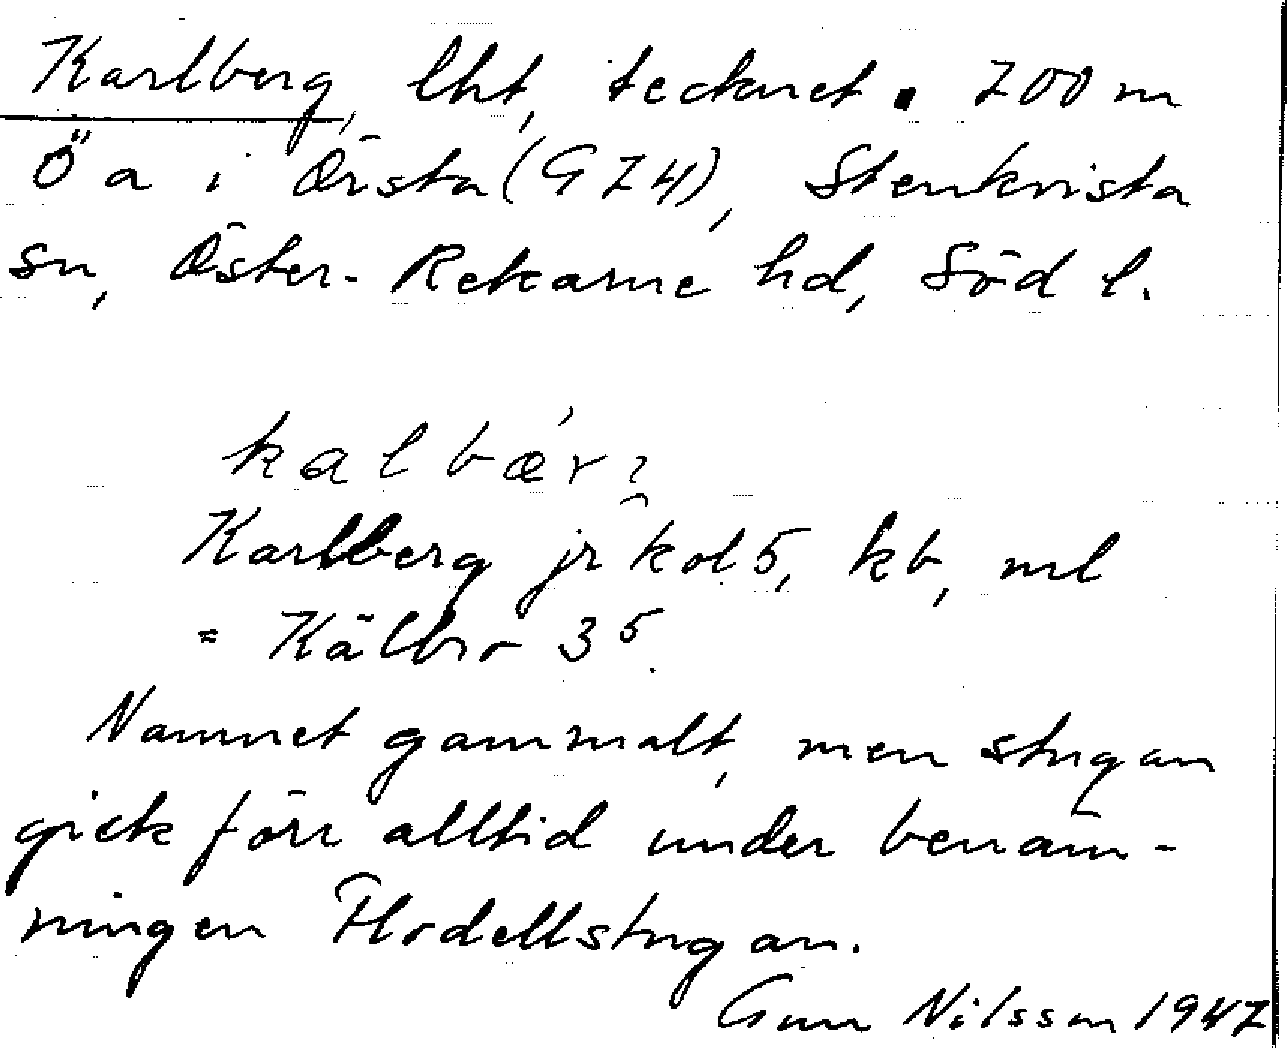 Karlberg, lht, tecknet ▪ 700 m
Ö a i Örsta (G 74), Stenkvista
sn, Öster-Rekarne hd, Söd l.
kalbǽr
Karlberg jr kol 5, kb, ml
= Källbro 3⁵.
Namnet gammalt, men stugan
gick förr alltid under benäm-
ningen Flodellstugan.
Gun Nilsson 1947